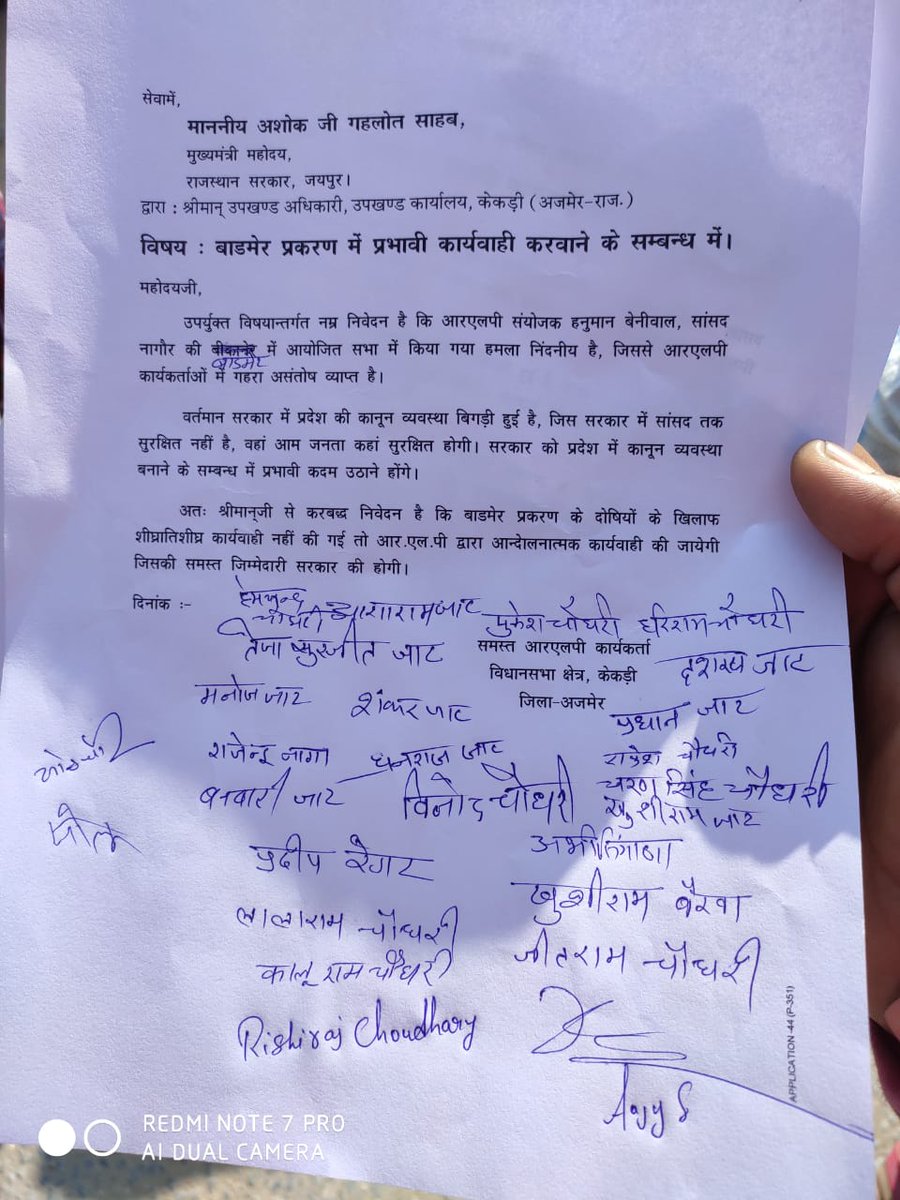 सेवामें,
माननीय अशोक जी गहलोत साहब,
मुख्यमंत्री महोदय,
राजस्थान सरकार, जयपुर।
द्वारा : श्रीमान् उपखण्ड अधिकारी, उपखण्ड कार्यालय, केकड़ी (अजमेर-राज.)
विषय : बाडमेर प्रकरण में प्रभावी कार्यवाही करवाने के सम्बन्ध में।
महोदयजी,
उपर्युक्त विषयान्तर्गत नम्र निवेदन है कि आरएलपी संयोजक हनुमान बेनीवाल, सांसद
नागौर की बीकानेर में आयोजित सभा में किया गया हमला निंदनीय है, जिससे आरएलपी
बाडमेर
कार्यकर्ताओं में गहरा असंतोष व्याप्त है।
वर्तमान सरकार में प्रदेश की कानून व्यवस्था बिगड़ी हुई है, जिस सरकार में सांसद तक
सुरक्षित नहीं है, वहां आम जनता कहां सुरक्षित होगी। सरकार को प्रदेश में कानून व्यवस्था
बनाने के सम्बन्ध में प्रभावी कदम उठाने होंगे।
अतः श्रीमान्जी से करबद्ध निवेदन है कि बाडमेर प्रकरण के दोषियों के खिलाफ
शीघ्रातिशीघ्र कार्यवाही नहीं की गई तो आर.एल.पी द्वारा आन्दोलनात्मक कार्यवाही की जायेगी
जिसकी समस्त जिम्मेदारी सरकार की होगी।
दिनांक :-
आशाराम जाट मुकेश चौधरी हरिराम चौधरी
जाट समस्त आरएलपी कार्यकर्ता
विधानसभा क्षेत्र, केकड़ी दशरथ जाट
मनोज जाट शंकर जाट जिला-अजमेर प्रधान जाट
राजेन्द्र नागा धनराज जाट राकेश चौधरी
बनवारी जाट विनोद चौधरी चरण सिंह चौधरी
खुशीराम जाट
प्रदीप रेगर
खुशीराम बैरवा
लालाराम चौधरी जीतराम चौधरी
कालूराम चौधरी
Rishiraj Choudhary
Ajay S
APPLICATION-44 (P-351)
REDMI NOTE 7 PRO
AI DUAL CAMERA